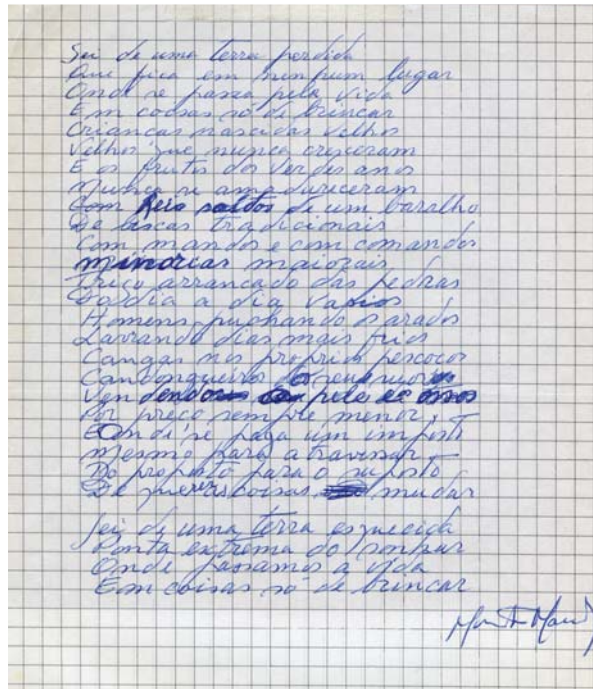 Sei de uma terra perdida
Que fica em nenhum lugar
Onde se passa pela vida
Em coisas só de brincar
Crianças nascidas velhos
Velhos que nunca cresceram
E os frutos dos verdes anos
Nunca se amadureceram
Com Reis de um baralho
De biscas tradicionais
Com mandos e com comandos
minorias maiorais
Trigo arrancado das pedras
dia a dia vazios
Homens puchando arados
Lavrando dias mais frios
Cangas nos proprios pescoços
Candongueiros
Vendendo pele e ossos
Por preço sempre menor
E onde se paga um imposto
mesmo para atravessar
Do proposto para o suposto
De quereres coisas mudar
Sei de uma terra esquecida
Ponta extrema do sonhar
Onde passamos a vida
Em coisas só de brincar